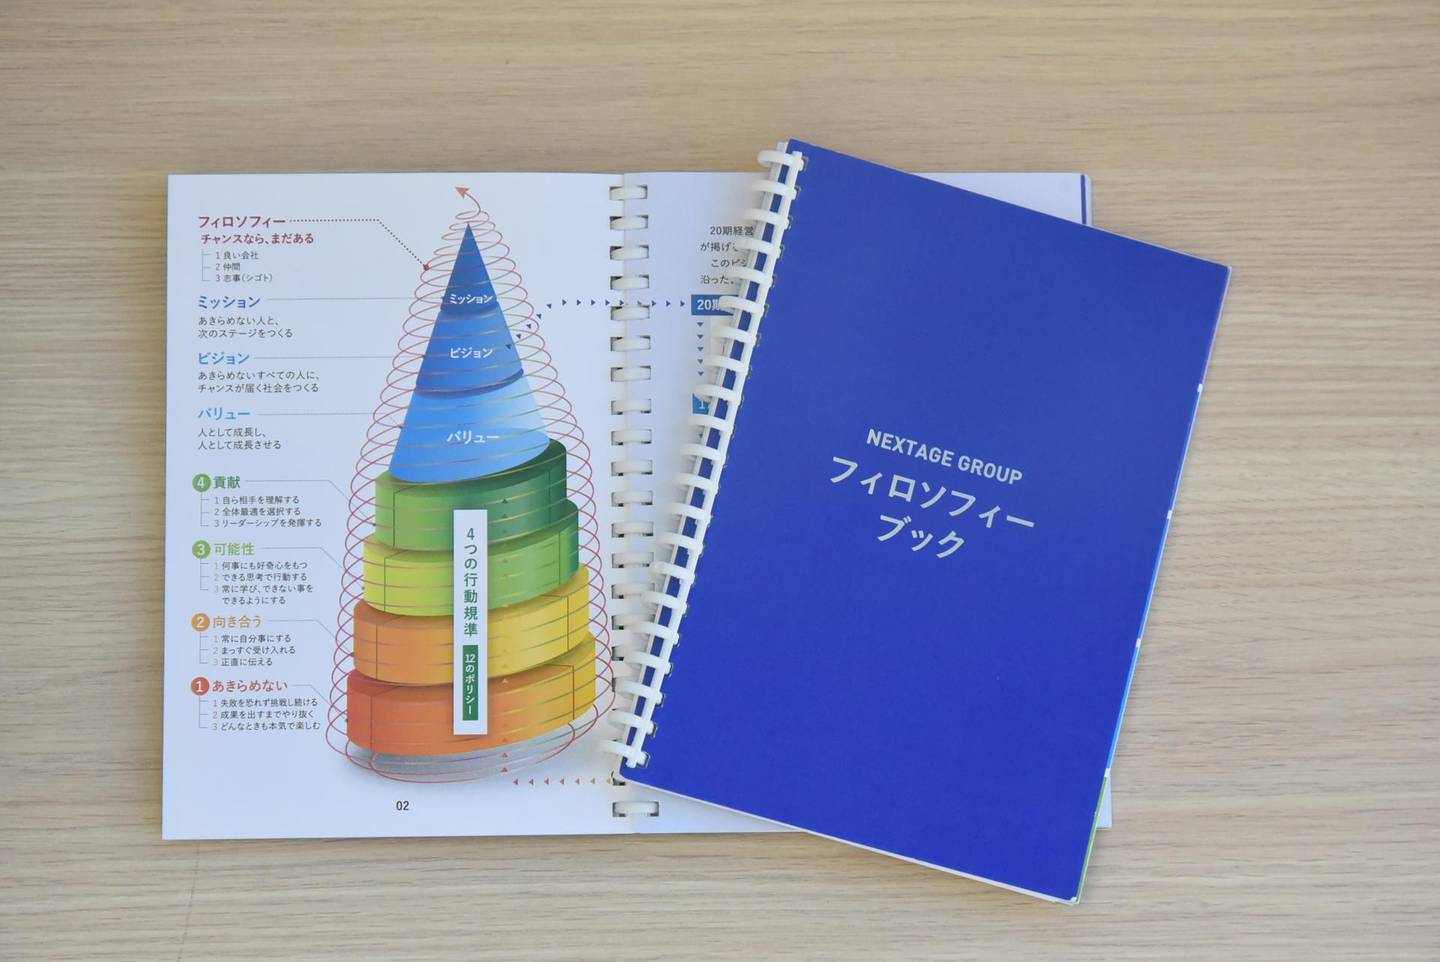 フィロソフィー
チャンスなら、まだある
1 良い会社
2 仲間
3 志事(シゴト)
ミッション
あきらめない人と、
次のステージをつくる
ビジョン
あきらめないすべての人に、
チャンスが届く社会をつくる
バリュー
人として成長し、
人として成長させる
4 貢献
1 自ら相手を理解する
2 全体最適を選択する
3 リーダーシップを発揮する
3 可能性
1 何事にも好奇心をもつ
2 できる思考で行動する
3 常に学び、できない事を
できるようにする
2 向き合う
1 常に自分事にする
2 まっすぐ受け入れる
3 正直に伝える
1 あきらめない
1 失敗を恐れず挑戦し続ける
2 成果を出すまでやり抜く
3 どんなときも本気で楽しむ
ミッション
ビジョン
バリュー
4つの行動規準
12のポリシー
02
20期経営
が掲げ
この
沿った
20期
NEXTAGE GROUP
フィロソフィー
ブック